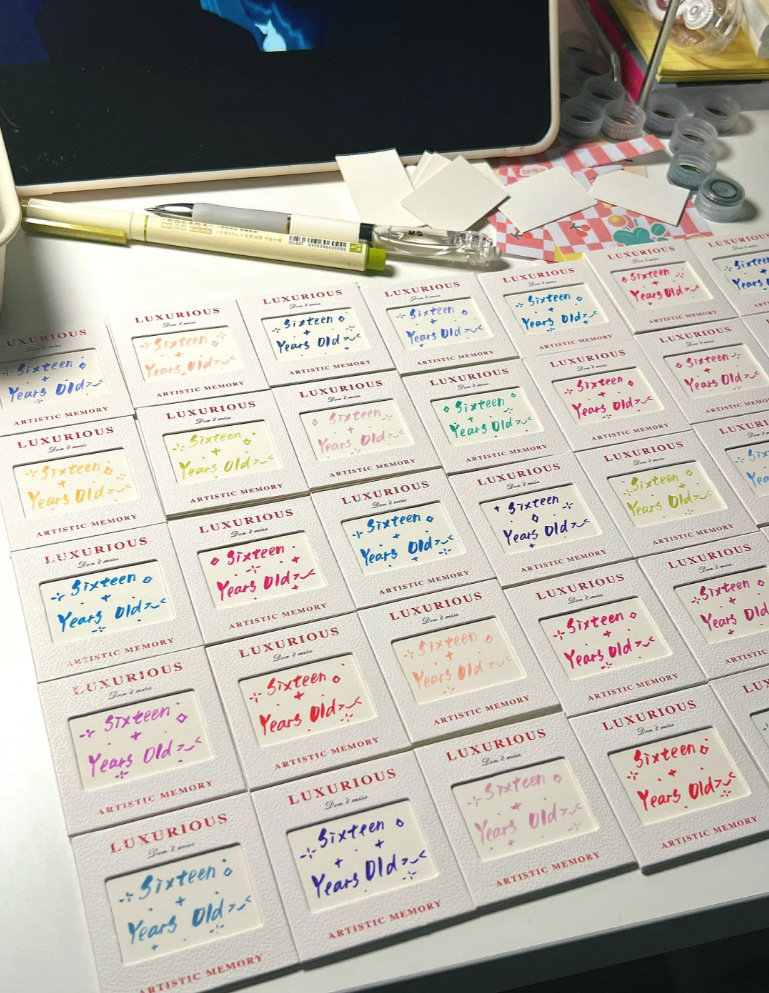 M&G
LUXURIOUS
Don't miss
Sixteen
Years Old
ARTISTIC MEMORY
LUXURIOUS
Don't miss
Sixteen
Years Old
ARTISTIC MEMORY
LUXURIOUS
Don't miss
Sixteen
Years Old
ARTISTIC MEMORY
LUXURIOUS
Don't miss
Sixteen
Years Old
ARTISTIC MEMORY
LUXURIOUS
Don't miss
Sixteen
Years Old
ARTISTIC MEMORY
LUXURIOUS
Don't miss
Sixteen
Years Old
ARTISTIC MEMORY
LUXURIOUS
Don't miss
Sixteen
Years Old
ARTISTIC MEMORY
LUXURIOUS
Don't miss
Sixteen
Years Old
ARTISTIC MEMORY
LUXURIOUS
Don't miss
Sixteen
Years Old
ARTISTIC MEMORY
LUXURIOUS
Don't miss
Sixteen
Years Old
ARTISTIC MEMORY
LUXURIOUS
Don't miss
Sixteen
Years Old
ARTISTIC MEMORY
LUXURIOUS
Don't miss
Sixteen
Years Old
ARTISTIC MEMORY
LUXURIOUS
Don't miss
Sixteen
Years Old
ARTISTIC MEMORY
LUXURIOUS
Don't miss
Sixteen
Years Old
ARTISTIC MEMORY
LUXURIOUS
Don't miss
Sixteen
Years Old
ARTISTIC MEMORY
LUXURIOUS
Don't miss
Sixteen
Years Old
ARTISTIC MEMORY
LUXURIOUS
Don't miss
Sixteen
Years Old
ARTISTIC MEMORY
LUXURIOUS
Don't miss
Sixteen
Years Old
ARTISTIC MEMORY
LUXURIOUS
Don't miss
Sixteen
Years Old
ARTISTIC MEMORY
LUXURIOUS
Don't miss
Sixteen
Years Old
ARTISTIC MEMORY
LUXURIOUS
Don't miss
Sixteen
Years Old
ARTISTIC MEMORY
LUXURIOUS
Don't miss
Sixteen
Years Old
ARTISTIC MEMORY
LUXURIOUS
Don't miss
Sixteen
Years Old
ARTISTIC MEMORY
LUXURIOUS
Don't miss
Sixteen
Years Old
ARTISTIC MEMORY
LUXURIOUS
Don't miss
Sixteen
Years Old
ARTISTIC MEMORY
LUXURIOUS
Don't miss
Sixteen
Years Old
ARTISTIC MEMORY